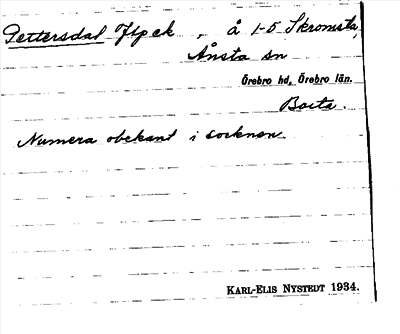 Pettersdal Jfpek , å 1-5 Skromsta,
Ånsta sn
Örebro hd, Örebro län.
Borta.
Numera obekant i socknen
KARL-ELIS NYSTEDT 1934.